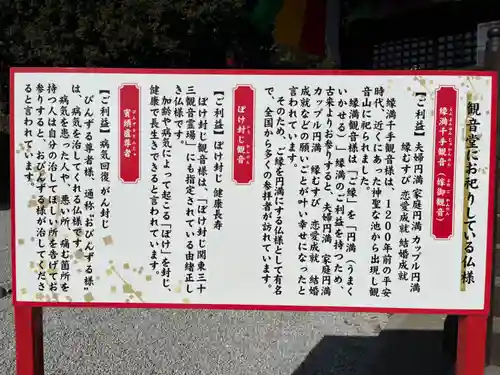 観音堂にお祀りしている仏様
縁満千手観音（縁御観音）
【ご利益】夫婦円満 カップル円満 家庭円満
縁むすび 恋愛成就 結婚成就
縁満千手観音様は、1200年前の平安
時代、近くにあった神聖な池から出現し観
音山に祀られました。
縁満観音様は「ご縁」を「円満（うまく
いかせる）」縁満のご利益を持つため、
古来よりお参りすると、夫婦円満 家庭円満
カップル円満 縁むすび 恋愛成就 結婚
成就などの願いごとが叶い幸せになったと
言われています。
そのため、ご縁を円満にする仏様として有名
で、全国から多くの参拝者が訪れています。
ぼけ封じ観音
【ご利益】ぼけ封じ 健康長寿
ぼけ封じ観音様は、「ぼけ封じ関東三十
三観音霊場」にも指定されている由緒正し
き仏様です。
加齢や病気によって起こる「ぼけ」を封じ、
健康で長生きできると言われています。
賓頭盧尊者
【ご利益】病気回復 がん封じ
びんずる尊者様、通称“おびんずる様”
は、病気を治してくれる仏様です。
病気を患った人や、悪い所、痛む箇所を
持つ人は自分の治してほしい所を告げてお
参りすると、おびんずる様が治してくださ
ると言われています。